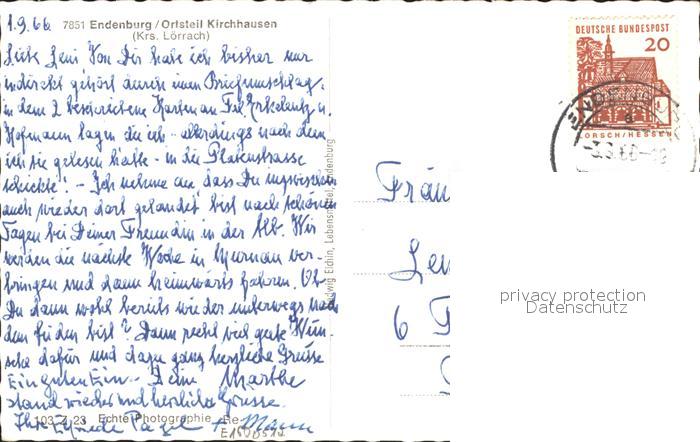 1.9.66 7851 Endenburg / Ortsteil Kirchhausen
(Krs. Lörrach)
Liebe Leni Von Dir habe ich bisher nur
indirekt gehört durch einen Briefumschlag.
in dem 2 beschriebene Karten an Frl. u.
Hofmann lagen die ich - allerdings nach dem
ich sie gelesen hatte - in die Platenstrasse
schickte! - Ich nehme an, dass Du inzwischen
auch wieder dort gelandet bist nach schönen
Tagen bei Deiner Freundin in der Alb. Wir
werden die nächste Woche in Murnau ver-
bringen und dann heimwärts fahren. Ob
Du dann wohl bereits wieder unterwegs nach
dem Süden bist? Dann recht viel gute Wün-
sche dafür und dazu ganz herzliche Grüsse
Deine Marthe
und herzliche Grüsse.
Ihre
103 23 Echte Photographie
E1500512
Ludwig Eichin, Lebensmittel, Endenburg
DEUTSCHE BUNDESPOST
20
LORSCH/HESSEN
Fräu
Len
6 F
privacy protection
Datenschutz